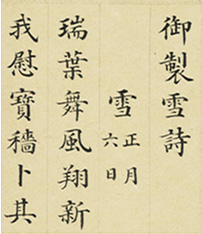 御製雪詩
雪 正月六日
瑞葉舞風翔新
我慰寶穡卜其